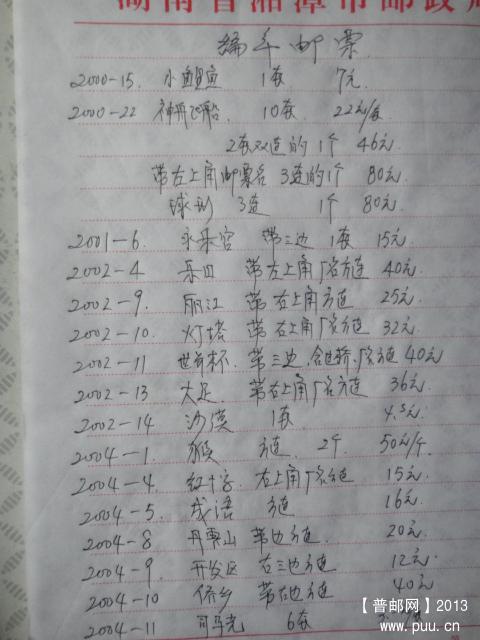 湖南省湘潭市邮政局
编年邮票
2000-15. 小鲤鱼 1套 7元.
2000-22 神舟飞船 10套. 22元/套
2套双连的1个 46元.
带左上角邮票名 3连的1个 80元.
球形 3连 1个 80元.
2001-6. 永乐宫 带三边 1套 15元.
2002-4 八大 带左上角厂名方连 40元.
2002-9. 丽江 带右上角方连 25元.
2002-10. 灯塔 带右上角厂名方连 32元.
2002-11 世界杯. 带三边,含过桥,厂名方连 40元
2002-13 大足 带右上角厂名方连 36元.
2002-14 沙漠 1套 4.5元.
2004-1. 猴 方连. 2个. 50元/个.
2004-4. 红十字. 右上角厂名方连 15元.
2004-5. 成语 方连 16元.
2004-8 丹霞山 带边方连 20元.
2004-9. 开发区 右三边方连 12元.
2004-10 侨乡 带右边方连 40元
2004-11 司马光 6套
【普邮网】2013
www.puu.cn